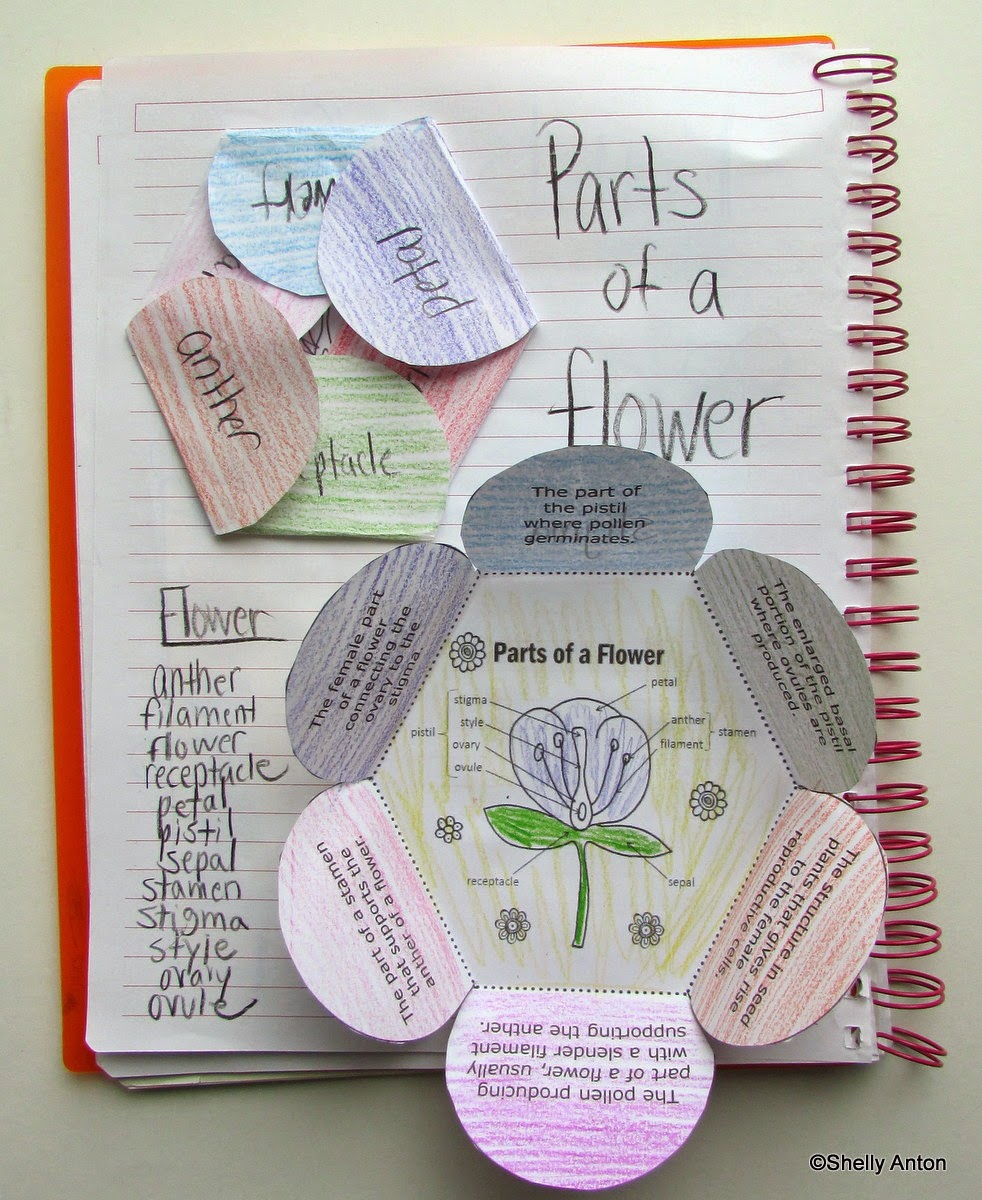 Parts
of a
flower
petal
anther
ptacle
Flower
anther
filament
flower
receptacle
petal
pistil
sepal
stamen
stigma
style
ovary
ovule
The part of
the pistil
where pollen
germinates.
The enlarged basal
portion of the pistil
where ovules are
produced.
The structure in seed
plants that gives rise
to the female
reproductive cells.
The pollen producing
part of a flower, usually
with a slender filament
supporting the anther.
The part of a stamen
that supports the
anther of a flower.
The female part
of a flower
connecting the
ovary to the
stigma.
Parts of a Flower
petal
stigma
style
pistil
ovary
ovule
anther
stamen
filament
receptacle
sepal
©Shelly Anton